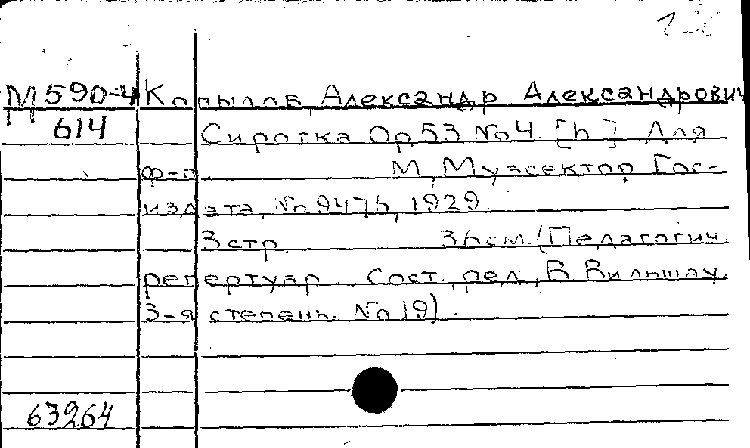 М590-4 Копылов, Александр Александрович
614 Сиротка Op53 №4 [h] Для
ф-п М, Музсектор Гос-
издата, №9476, 1929
3 стр 36см. (Педагогич.
репертуар Сост, ред, В Вильшау
3-я степень. №19).
63264